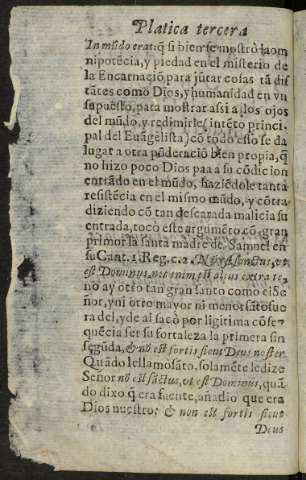 Platica tercera
In mũdo erat, q̃ si bien se mostrò la om
nipotẽcia, y piedad en el misterio de
la Encarnaciõ, para jũtar cosas tã dis
tãtes como Dios, y humanidad en vn
supuesto, para mostrar assi a los ojos
del mũdo, y redimirles intẽto princi-
pal del Euãgelista) cõ todo esso se da
lugar a otra põderaciõ bien propia, q̃
no hizo poco Dios paa a su cõdicion
entrãdo en el mũdo, haziẽdole tanta
resistẽcia en el mismo mũdo, y cõtra
diziendo cõ tan descarada malicia su
entrada, tocò este argumẽto cõ gran
primor la santa madre de Samuel en
su Cant. 1. Reg. c. 2. Nõ est sanctus, vt
est Dominus, nec enim est alius extra te,
no ay otro tan gran santo como el Se
ñor, y ni otro mayor ni menor sãto fue
ra del, y de al sacò por ligitima cõse-
quẽcia ser su fortaleza la primera sin
segũda, & nõ est fortis sicut Deus noster.
Quãdo le llamo sãto, solamẽte le dize
Señor nõ est sãctus, vt est Dominus, quã
do dixo q̃ era fuerte, añadio que era
Dios nuestro: & non est fortis sicut
Deus